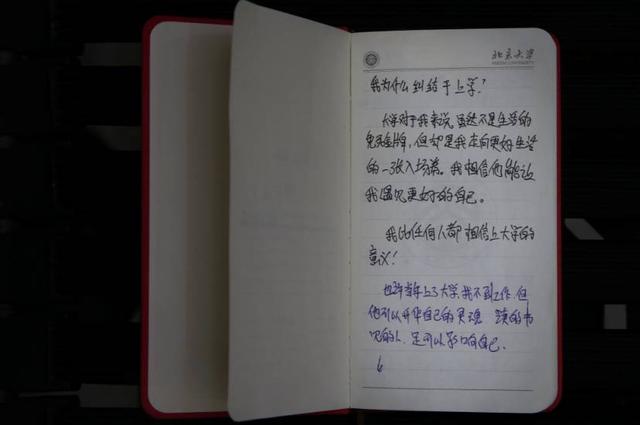 北京大学
PEKING UNIVERSITY
我为什么纠结于上学?
大学对于我来说,虽然不是生活的
免死金牌,但却是我走向更好生活
的一张入场券。我相信他能让
我遇见更好的自己。
我比任何人都相信上大学的
意义!
也许当年上了大学,我不到工作,但
他可以升华自己的灵魂 读的书
见的人,是可以影响自己.